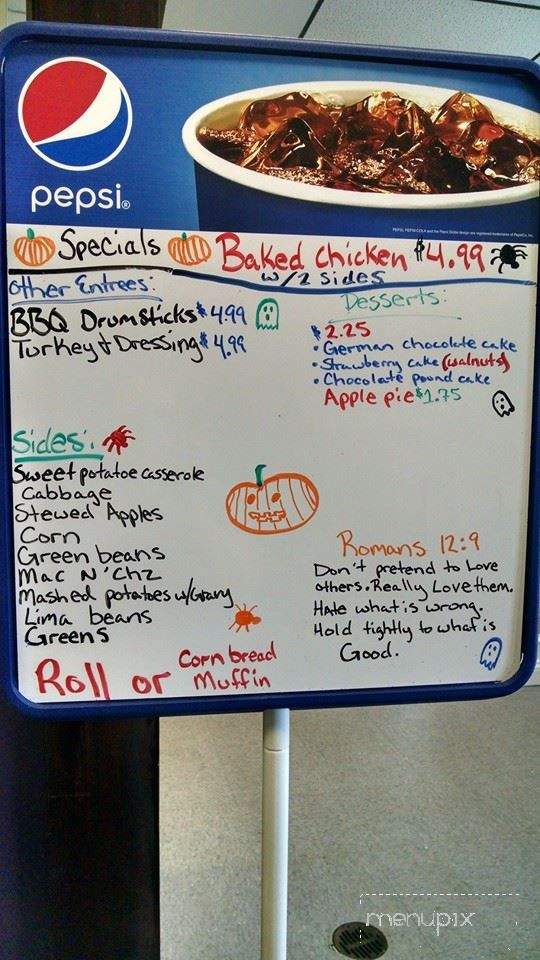 pepsi®
Specials Baked Chicken $4.99
w/2 sides
Other Entrees:
BBQ Drumsticks $4.99
Turkey & Dressing $4.99
Desserts:
$2.25
• German chocolate cake
• Strawberry cake (walnuts)
• Chocolate pound cake
Apple pie $1.75
Sides:
Sweet potatoe casserole
Cabbage
Stewed Apples
Corn
Green beans
Mac N' Chz
Mashed potatoes w/Gravy
Lima beans
Greens
Roll or Corn bread
Muffin
Romans 12:9
Don't pretend to Love
others. Really Love them.
Hate what is wrong.
Hold tightly to what is
Good.
menupix